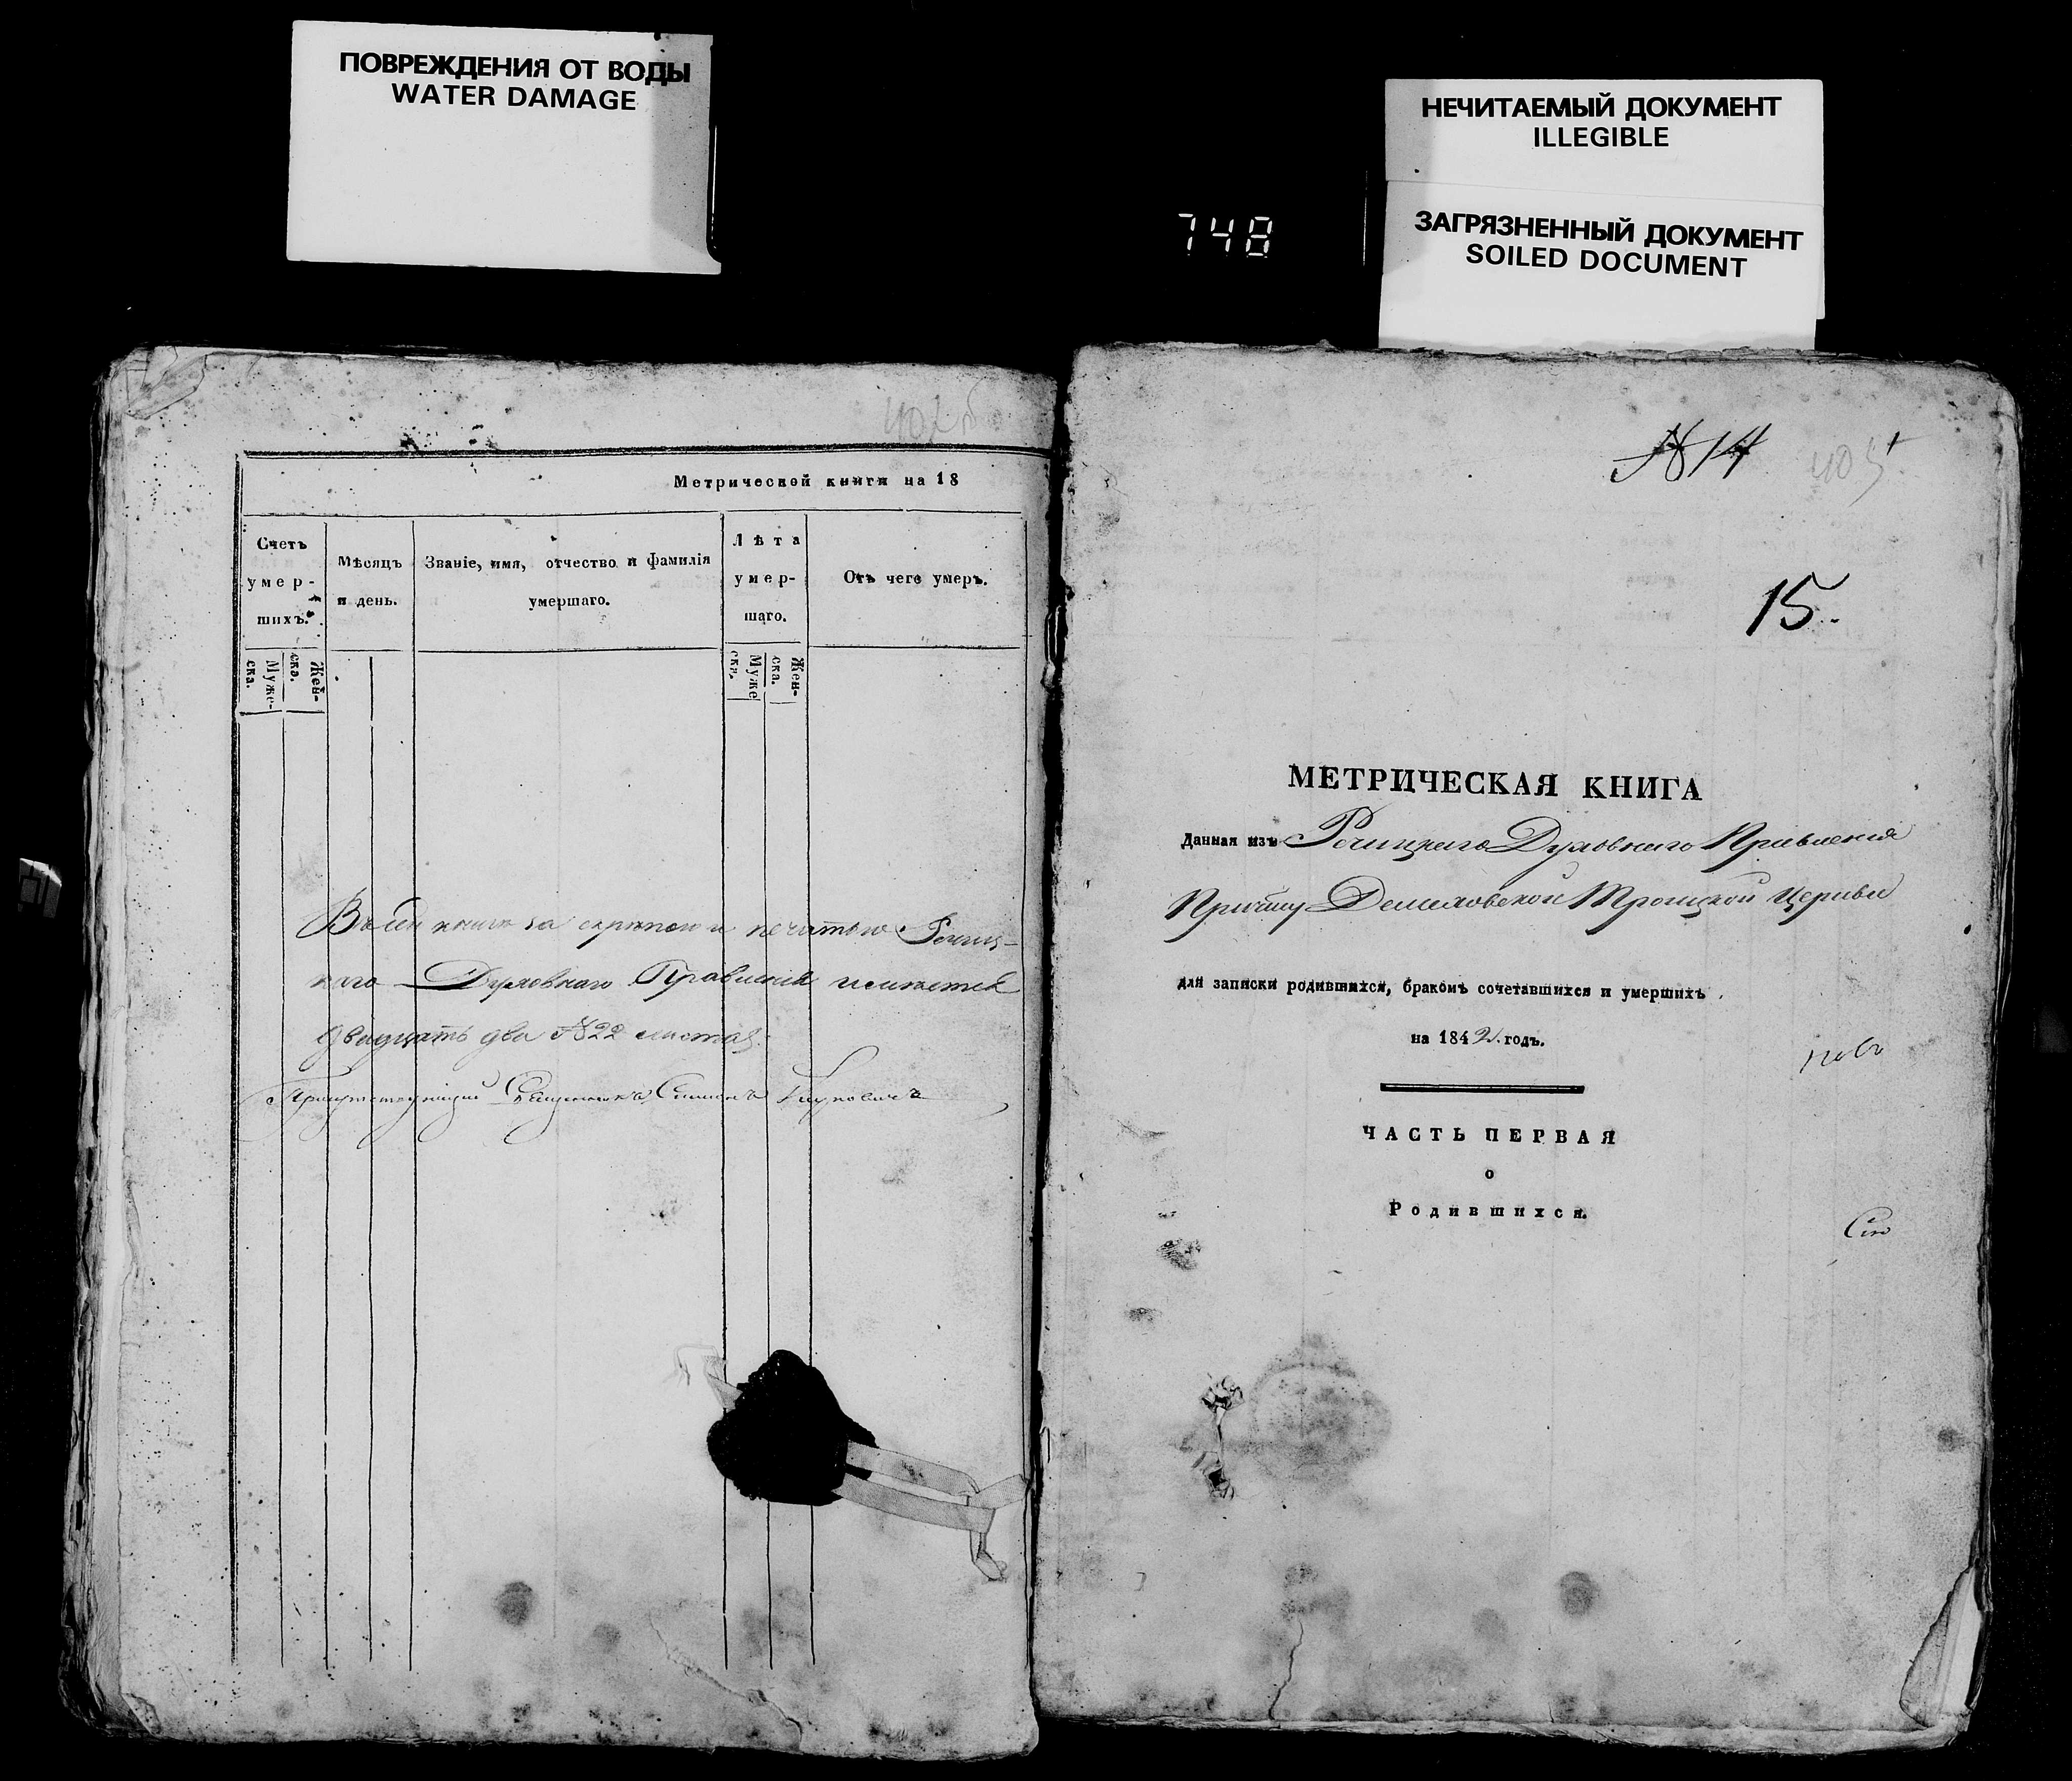 ПОВРЕЖДЕНИЯ ОТ ВОДЫ
WATER DAMAGE
НЕЧИТАЕМЫЙ ДОКУМЕНТ
ILLEGIBLE
ЗАГРЯЗНЕННЫЙ ДОКУМЕНТ
SOILED DOCUMENT
748
Метрической книги на 18
Счетъ умер-шихъ.
Мѣсяцъ и день.
Званіе, имя, отчество и фамилія умершаго.
Лѣта умер-шаго.
Отъ чего умеръ.
Муже-ска.
Жен-ска.
Муже ска.
Жен-ска.
Въ сей книге за скрепою и печатью Речиц-
каго Духовнаго Правленія имѣется
двадцать два №22 листа
Присутствующій Священникъ Симонъ
№ 14
15.
МЕТРИЧЕСКАЯ КНИГА
Данная изъ Речицкаго Духовнаго Правленія
Причту Демеховской Троицкой Церкви
для записки родившихся, бракомъ сочетавшихся и умершихъ
на 1842 годъ.
ЧАСТЬ ПЕРВАЯ
о
Родившихся.